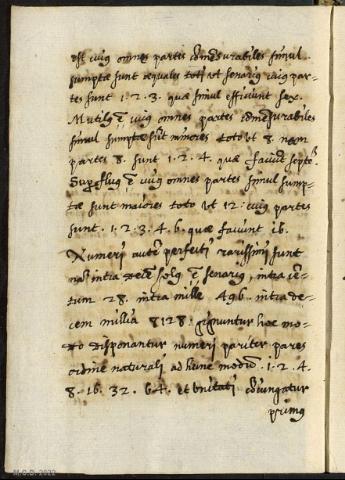 est cuius omnes partes comensurabiles simul
sumptae sunt aequales toti ut senarius cuius par-
tes sunt 1. 2. 3. quae simul efficiunt sex.
Mutilus ē cuius omnes partes comēsurabiles
simul sumptae sūt minores toto ut 8. nam
partes 8. sunt 1. 2. 4. quae faciūt septē.
ē cuius omnes partes simul sump-
tae sunt maiores toto ut 12. cuius partes
sunt. 1. 2. 3. 4. 6. quae faciunt 16.
Numeri autē perfecti rarissimi sunt
nā intra solus ē senarius, intra cē-
tum 28. intra mille 496. intra de-
cem millia 8128. gignuntur hoc mo-
do disponantur numeri pariter pares
ordine naturali ad hunc modū. 1. 2. 4.
8. 16. 32. 64. et unitati coniungatur
primus